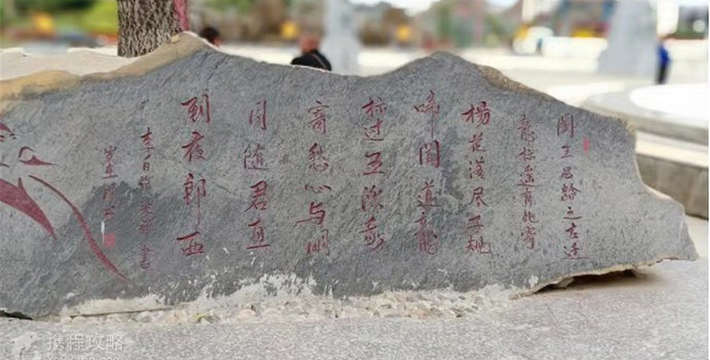 闻王昌龄之左迁
龙标遥有此寄
杨花落尽子规
啼闻道龙
标过五溪我
寄愁心与明
月随君直
到夜郎西
李白诗
携程攻略